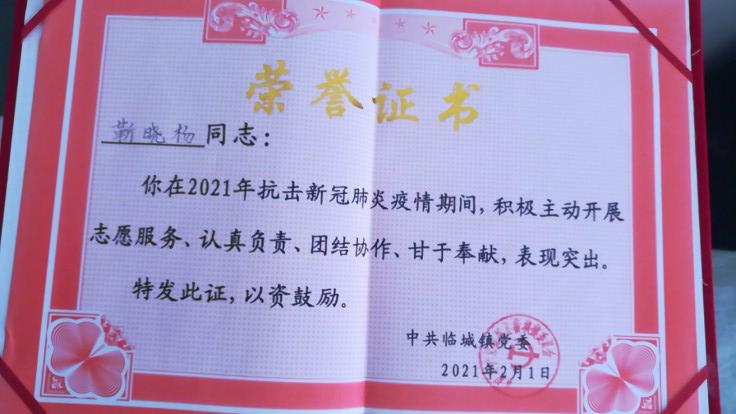 荣誉证书
靳晓杨同志：
你在2021年抗击新冠肺炎疫情期间，积极主动开展
志愿服务、认真负责、团结协作、甘于奉献，表现突出。
特发此证，以资鼓励。
中共临城镇党委
2021年2月1日